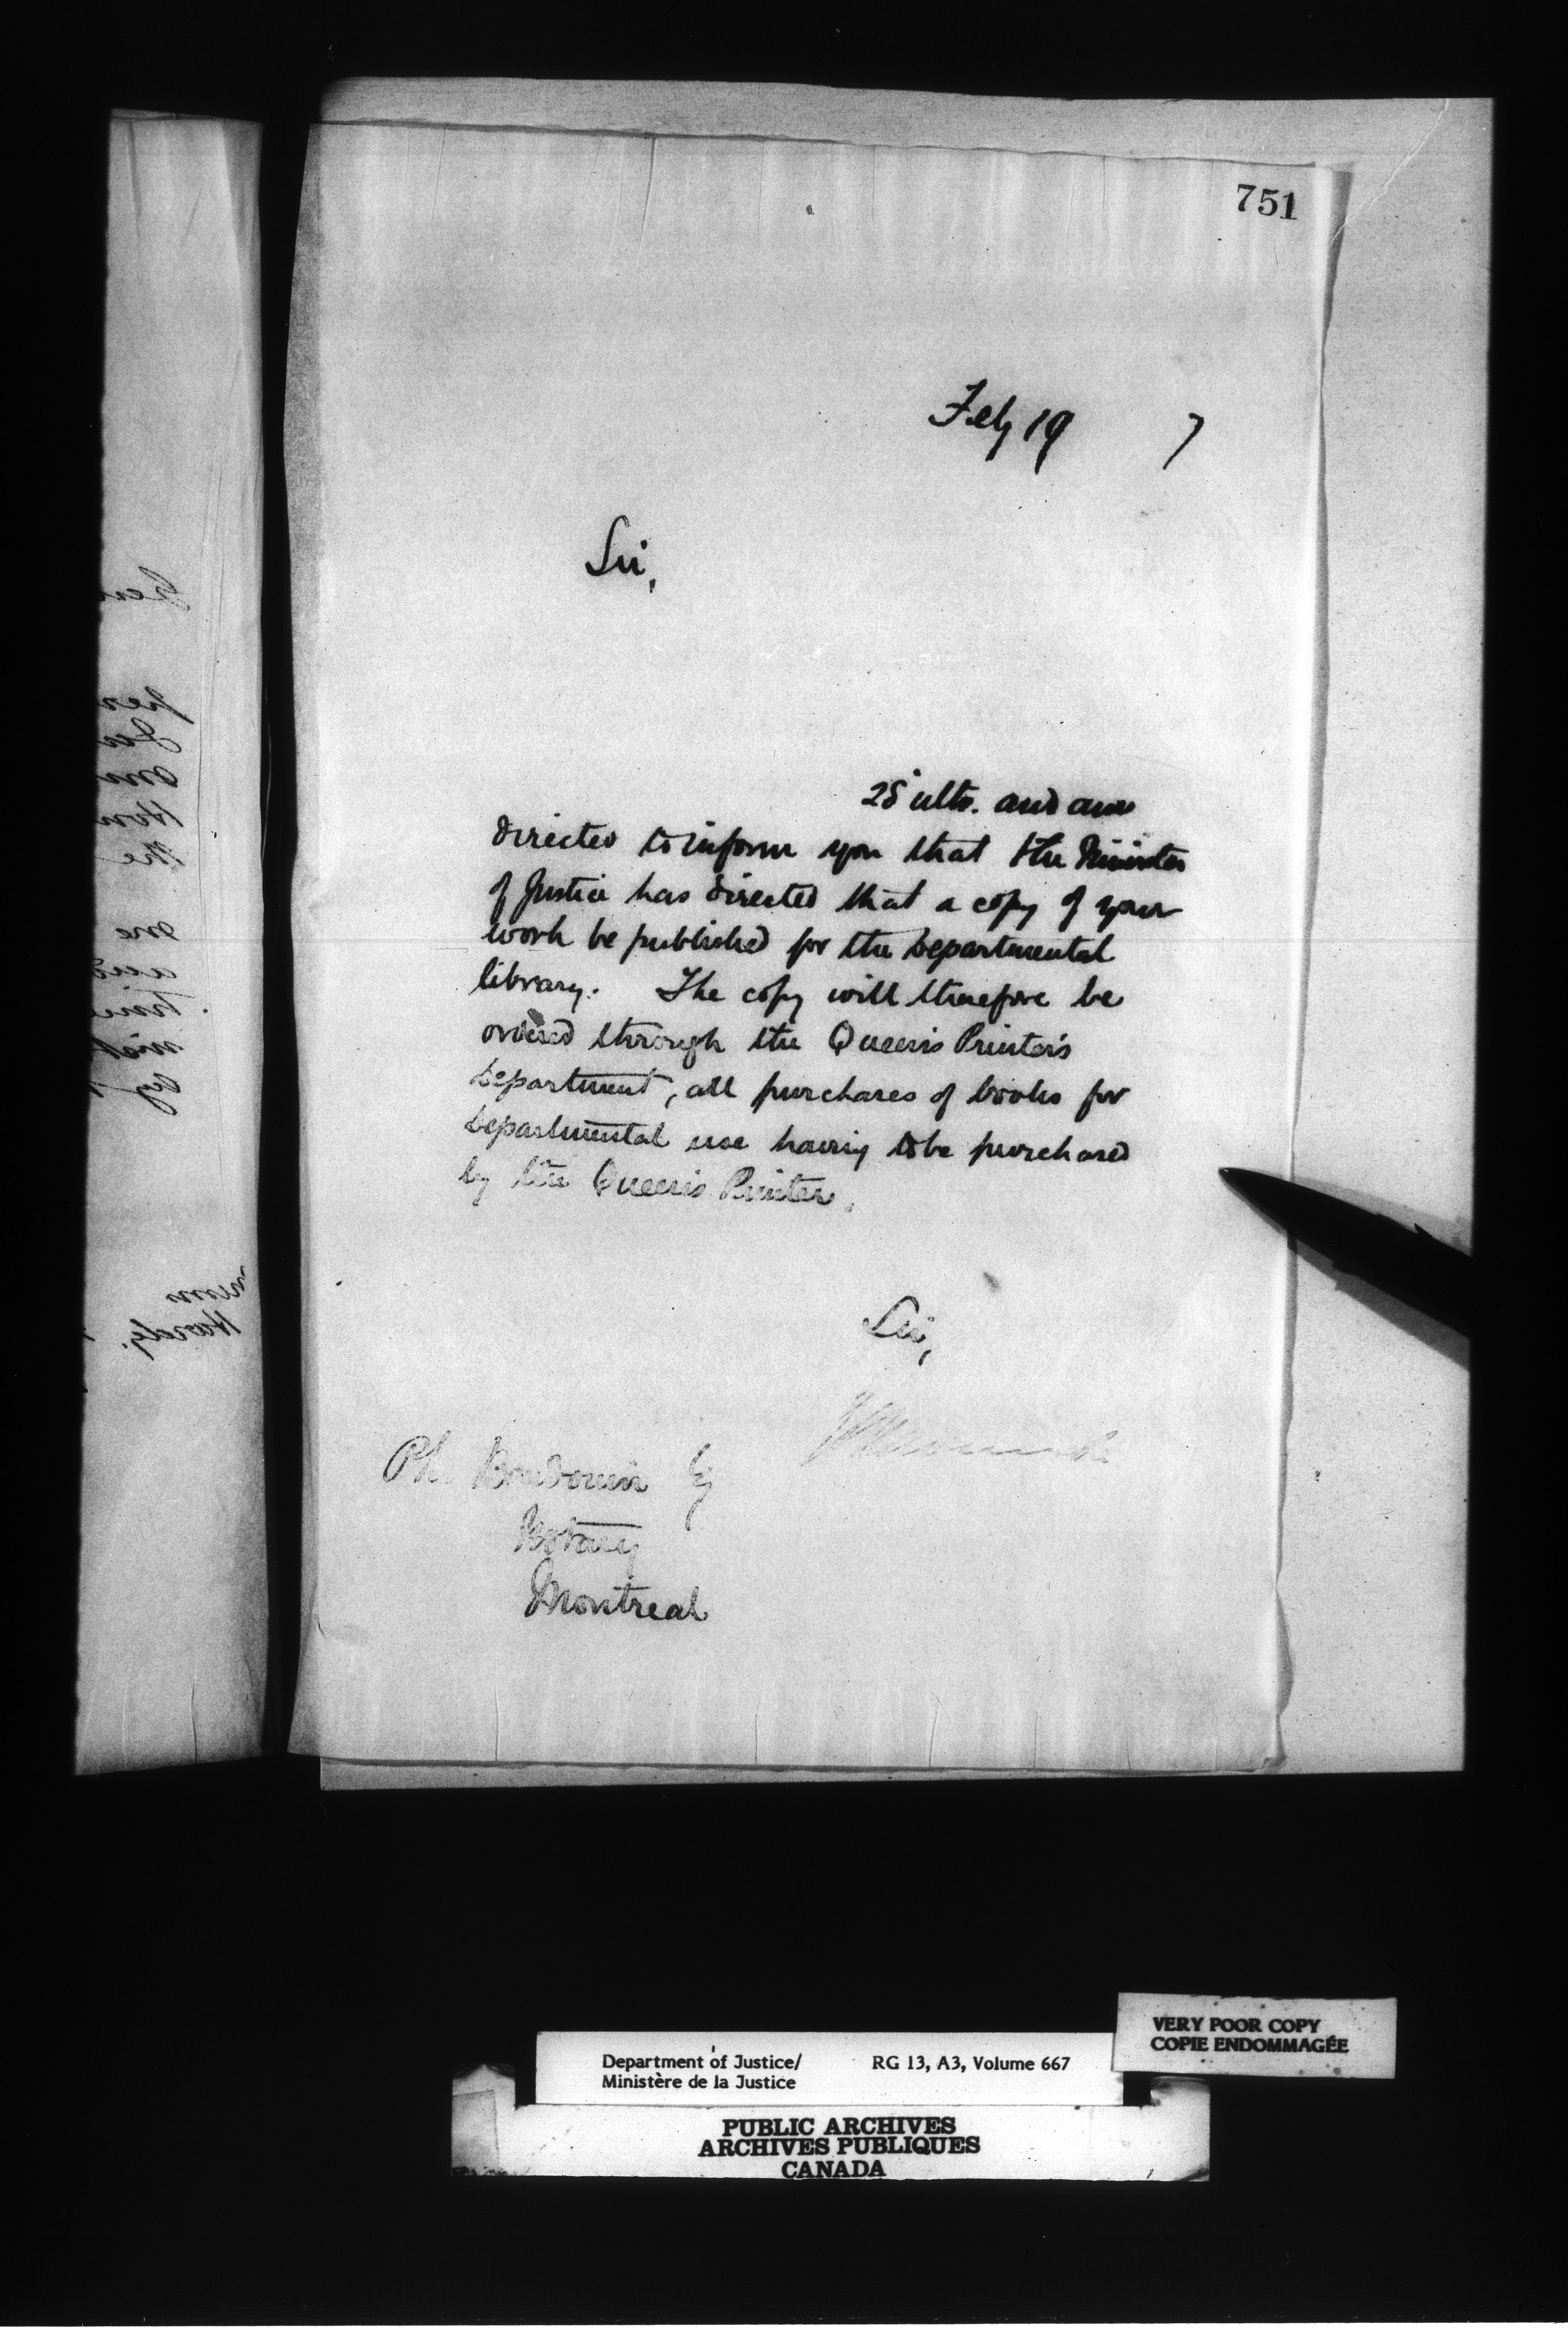 751
Feby 19 7
Sir,
28 ulto. and am
directed to inform you that the Minister
of Justice has directed that a copy of your
work be published for the departmental
library. The copy will therefore be
ordered through the Queen's Printer's
department, all purchases of books for
departmental use having to be purchased
by the Queen's Printer.
Sir,
Ph. Baudouin
Notary
Montreal
VERY POOR COPY
COPIE ENDOMMAGÉE
Department of Justice/ RG 13, A3, Volume 667
Ministère de la Justice
PUBLIC ARCHIVES
ARCHIVES PUBLIQUES
CANADA